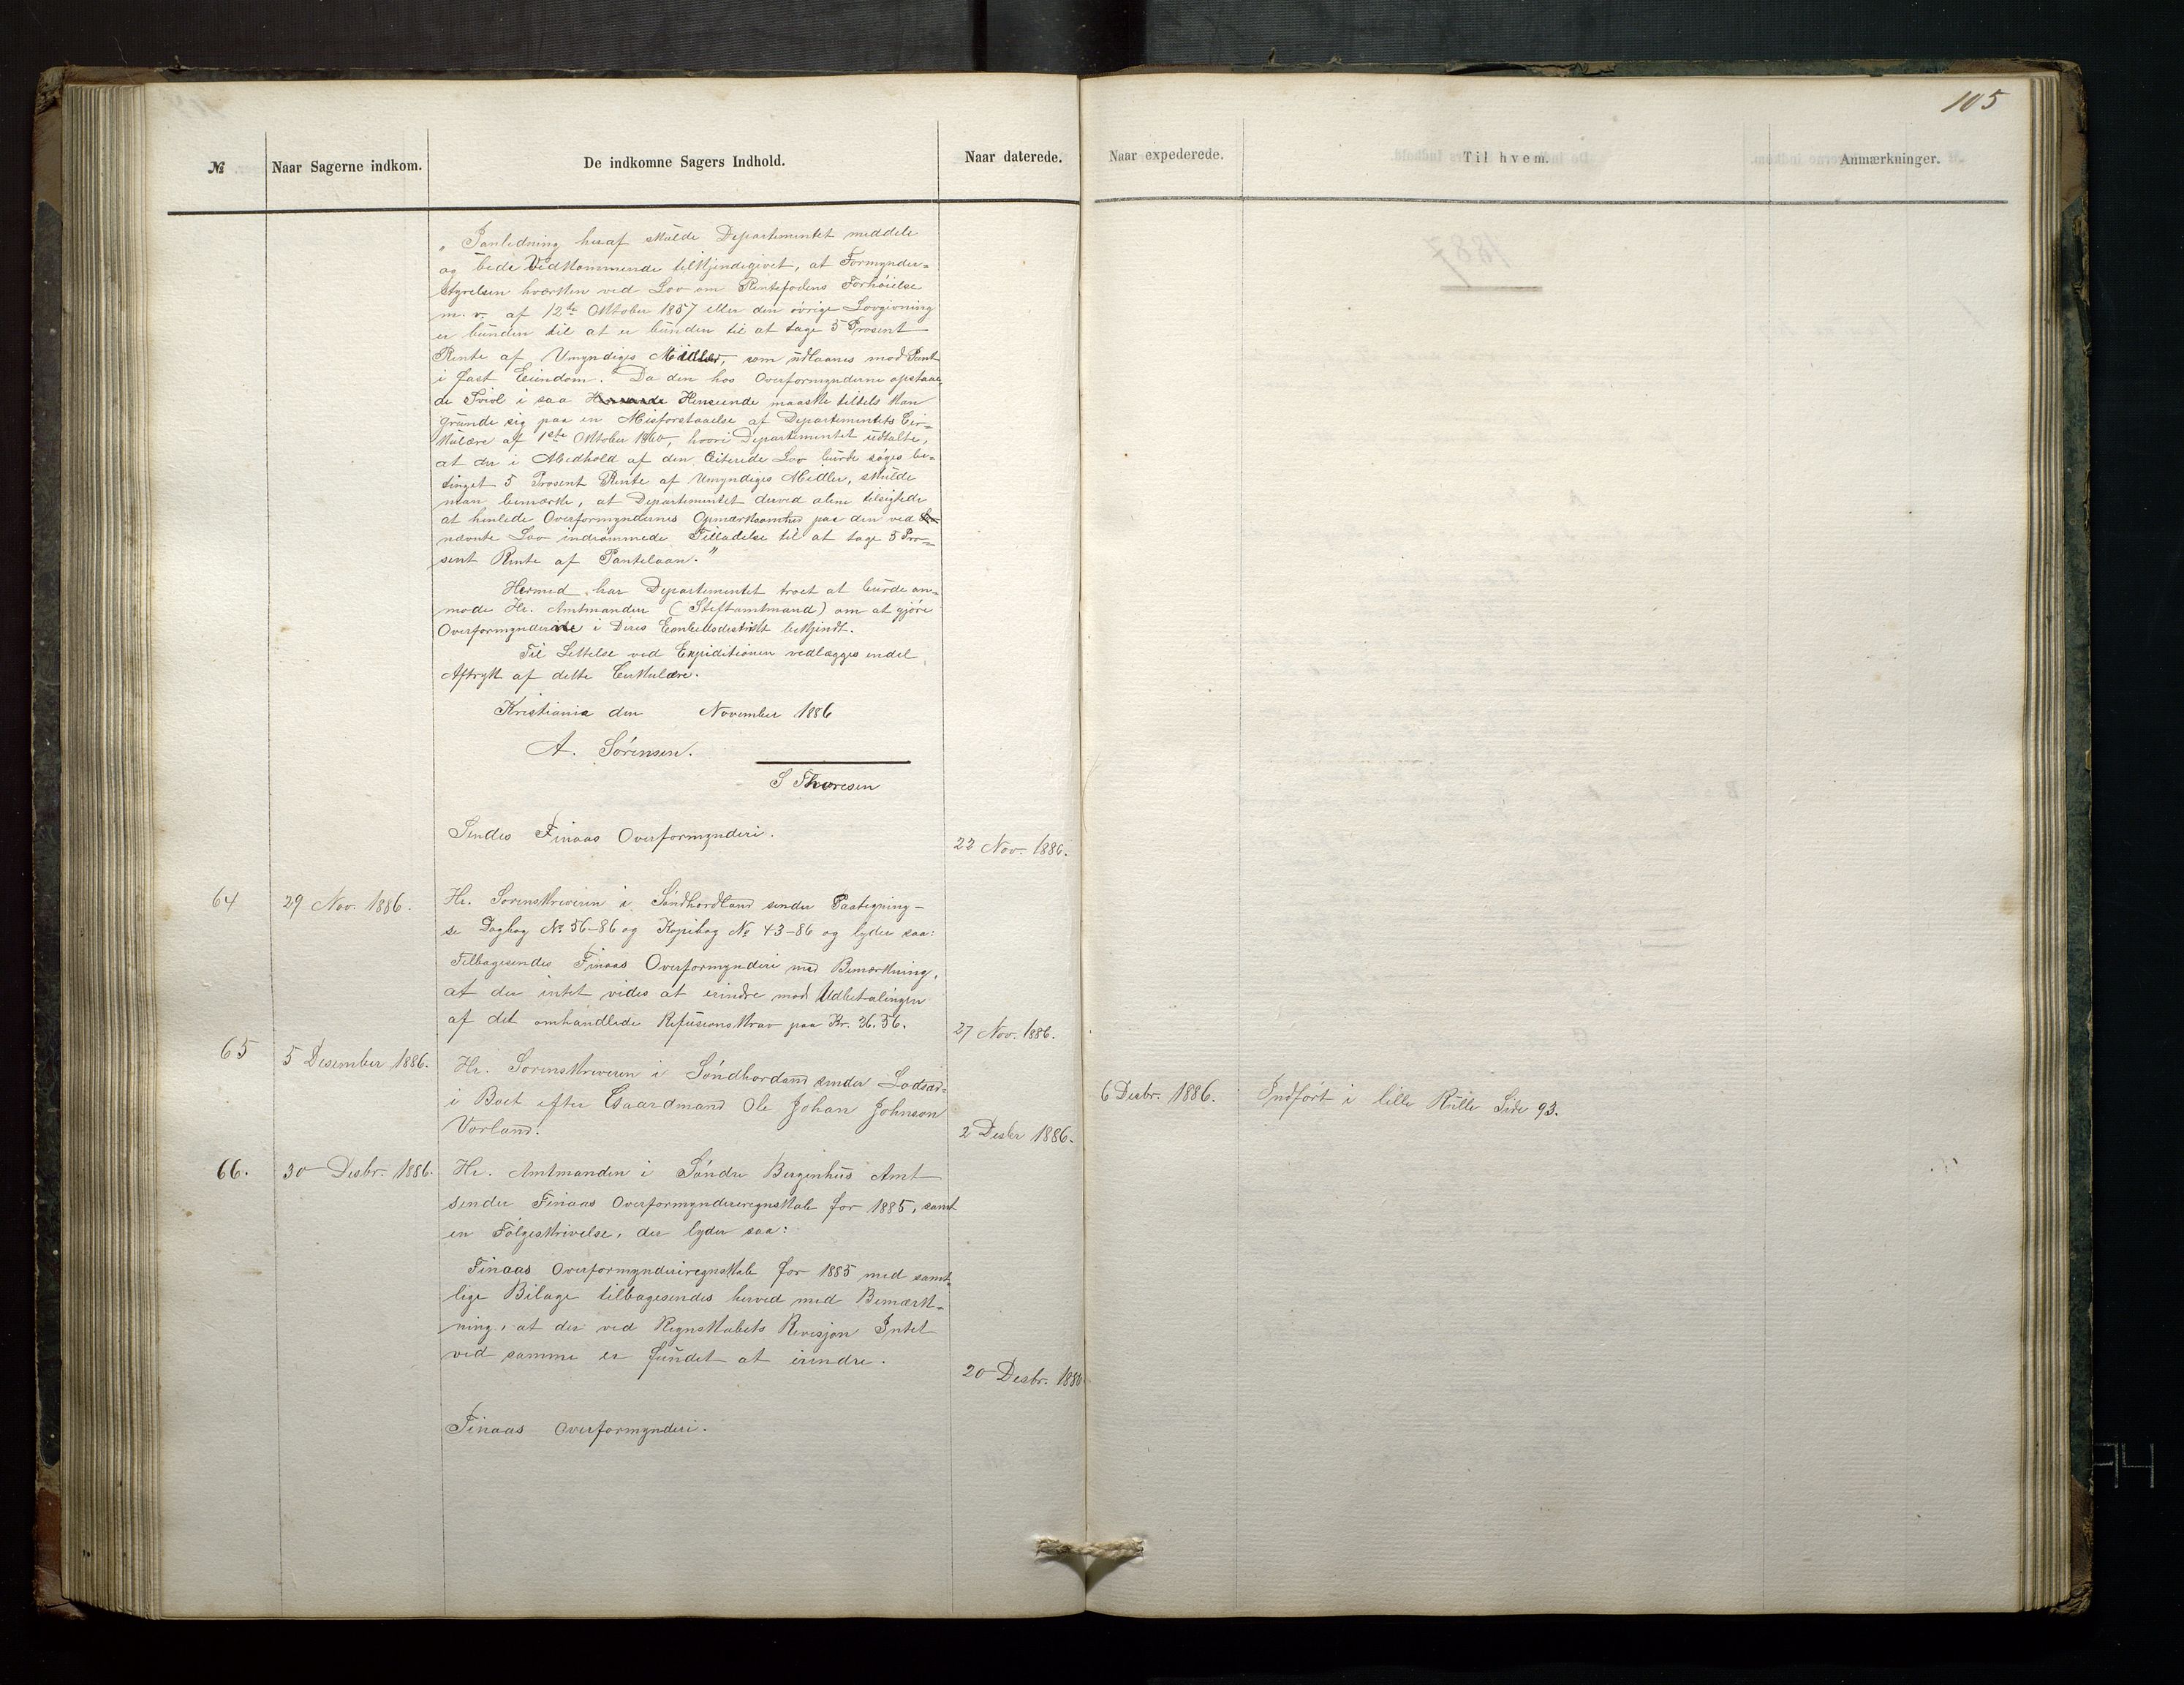 105
№
Naar Sagerne indkom.
De indkomne Sagers Indhold.
Naar daterede.
Naar expederede.
Til hvem.
Anmærkninger.
„ I anledning heraf skulde Departementet meddele
og bede Vedkommende tilkjendegivet, at Formynder-
styrelsen hverken ved Lov om Rentefodens Forhøielse
m. v. af 12te Oktober 1857 eller den øvrige Lovgivning
er bunden til at er bunden til at tage 5 Prosent
Rente af Umyndiges Midler, som udlaanes mod Pant
i fast Eiendom. Da den hos Overformynderne opstaae-
de Tvivl i saa Henseende maaske tildels kan
grunde sig paa en Misforstaaelse af Departementets Cir-
kulære af 1ste Oktober 1860, hvori Departementet udtalte,
at der i Medhold af den Citerede Lov burde søges be-
tinget 5 Prosent Rente af Umyndiges Midler, skulde
man bemærke, at Departementet derved alene tilsigtede
at henlede Overformyndernes Opmærksomhed paa den ved
nævnte Lov indrømmede Tilladelse til at tage 5 Pro-
sent Rente af Pantelaan."
Hermed har Departementet troet at burde an-
mode Hr. Amtmanden (Stiftamtmand) om at gjøre
Overformynderne i Deres Embedsdestrikt bekjendt.
Til Lettelse ved Expeditionen vedlægges endel
Aftryk af dette Cirkulære.
Kristiania den November 1886
A. Sørensen.
S Thoresen
Sendes Finaas Overformynderi.
22 Nov. 1886.
64
29 Nov. 1886.
Hr. Sorenskriveren i Søndhordland sender Paategning-
se Dagbog № 56-86 og Kopibog № 43-86 og lyder saa:
Tilbagesendes Finaas Overformynderi med Bemærkning,
at der intet vides at erindre mod Udbetalingen
af det omhandlede Refusionskrav paa Kr. 36.36.
27 Nov. 1886.
65
5 Desember 1886.
Hr. Sorenskriveren i Søndhordand sender Lodsed-
i Boet efter Gaardmand Ole Johan Johnson
Vorland.
2 Desbr 1886.
6 Desbr. 1886.
Indført i lille Rulle Side 93.
66.
30 Desbr. 1886.
Hr. Amtmanden i Søndre Bergenhus Amt
sender Finaas Overformynderiregnskab for 1885, samt
en Følgeskrivelse, der lyder saa:
Finaas Overformynderiregnskab for 1885 med samt-
lige Bilage tilbagesendes herved med Bemærk-
ning, at der ved Regnskabets Revisjon Intet
ved samme er fundet at erindre.
20 Desbr. 1886
Finaas Overformynderi.